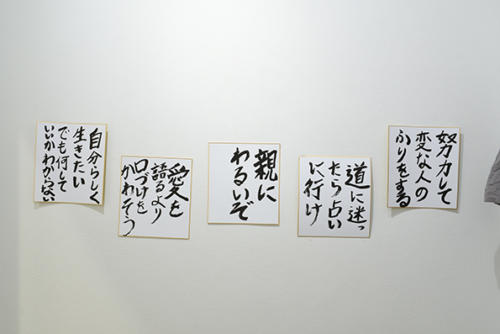 努力して
変な人の
ふりをする
道に迷っ
たら占い
に行け
親に
わるいぞ
愛を
語るより
口づけを
かわそう
自分らしく
生きたい
でも何して
いいかわからない